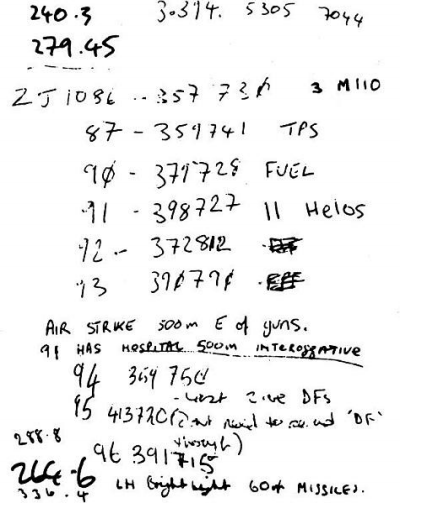 240.3 3.394. 5305 7044
279.45
ZJ1086 - 357 730 3 M110
87 - 359741 TPS
90 - 379728 FUEL
91 - 398727 11 Helos
92 - 372812
93 390790
AIR STRIKE 500m E of guns.
91 HAS HOSPITAL 500m INTEROGGATIVE
94 359 750
- West 2ive DFs
95 413720 (2 but need to send 'DF'
288.8 through)
264.6 96 391715
336.4 LH Bright light 60+ MISSILES.